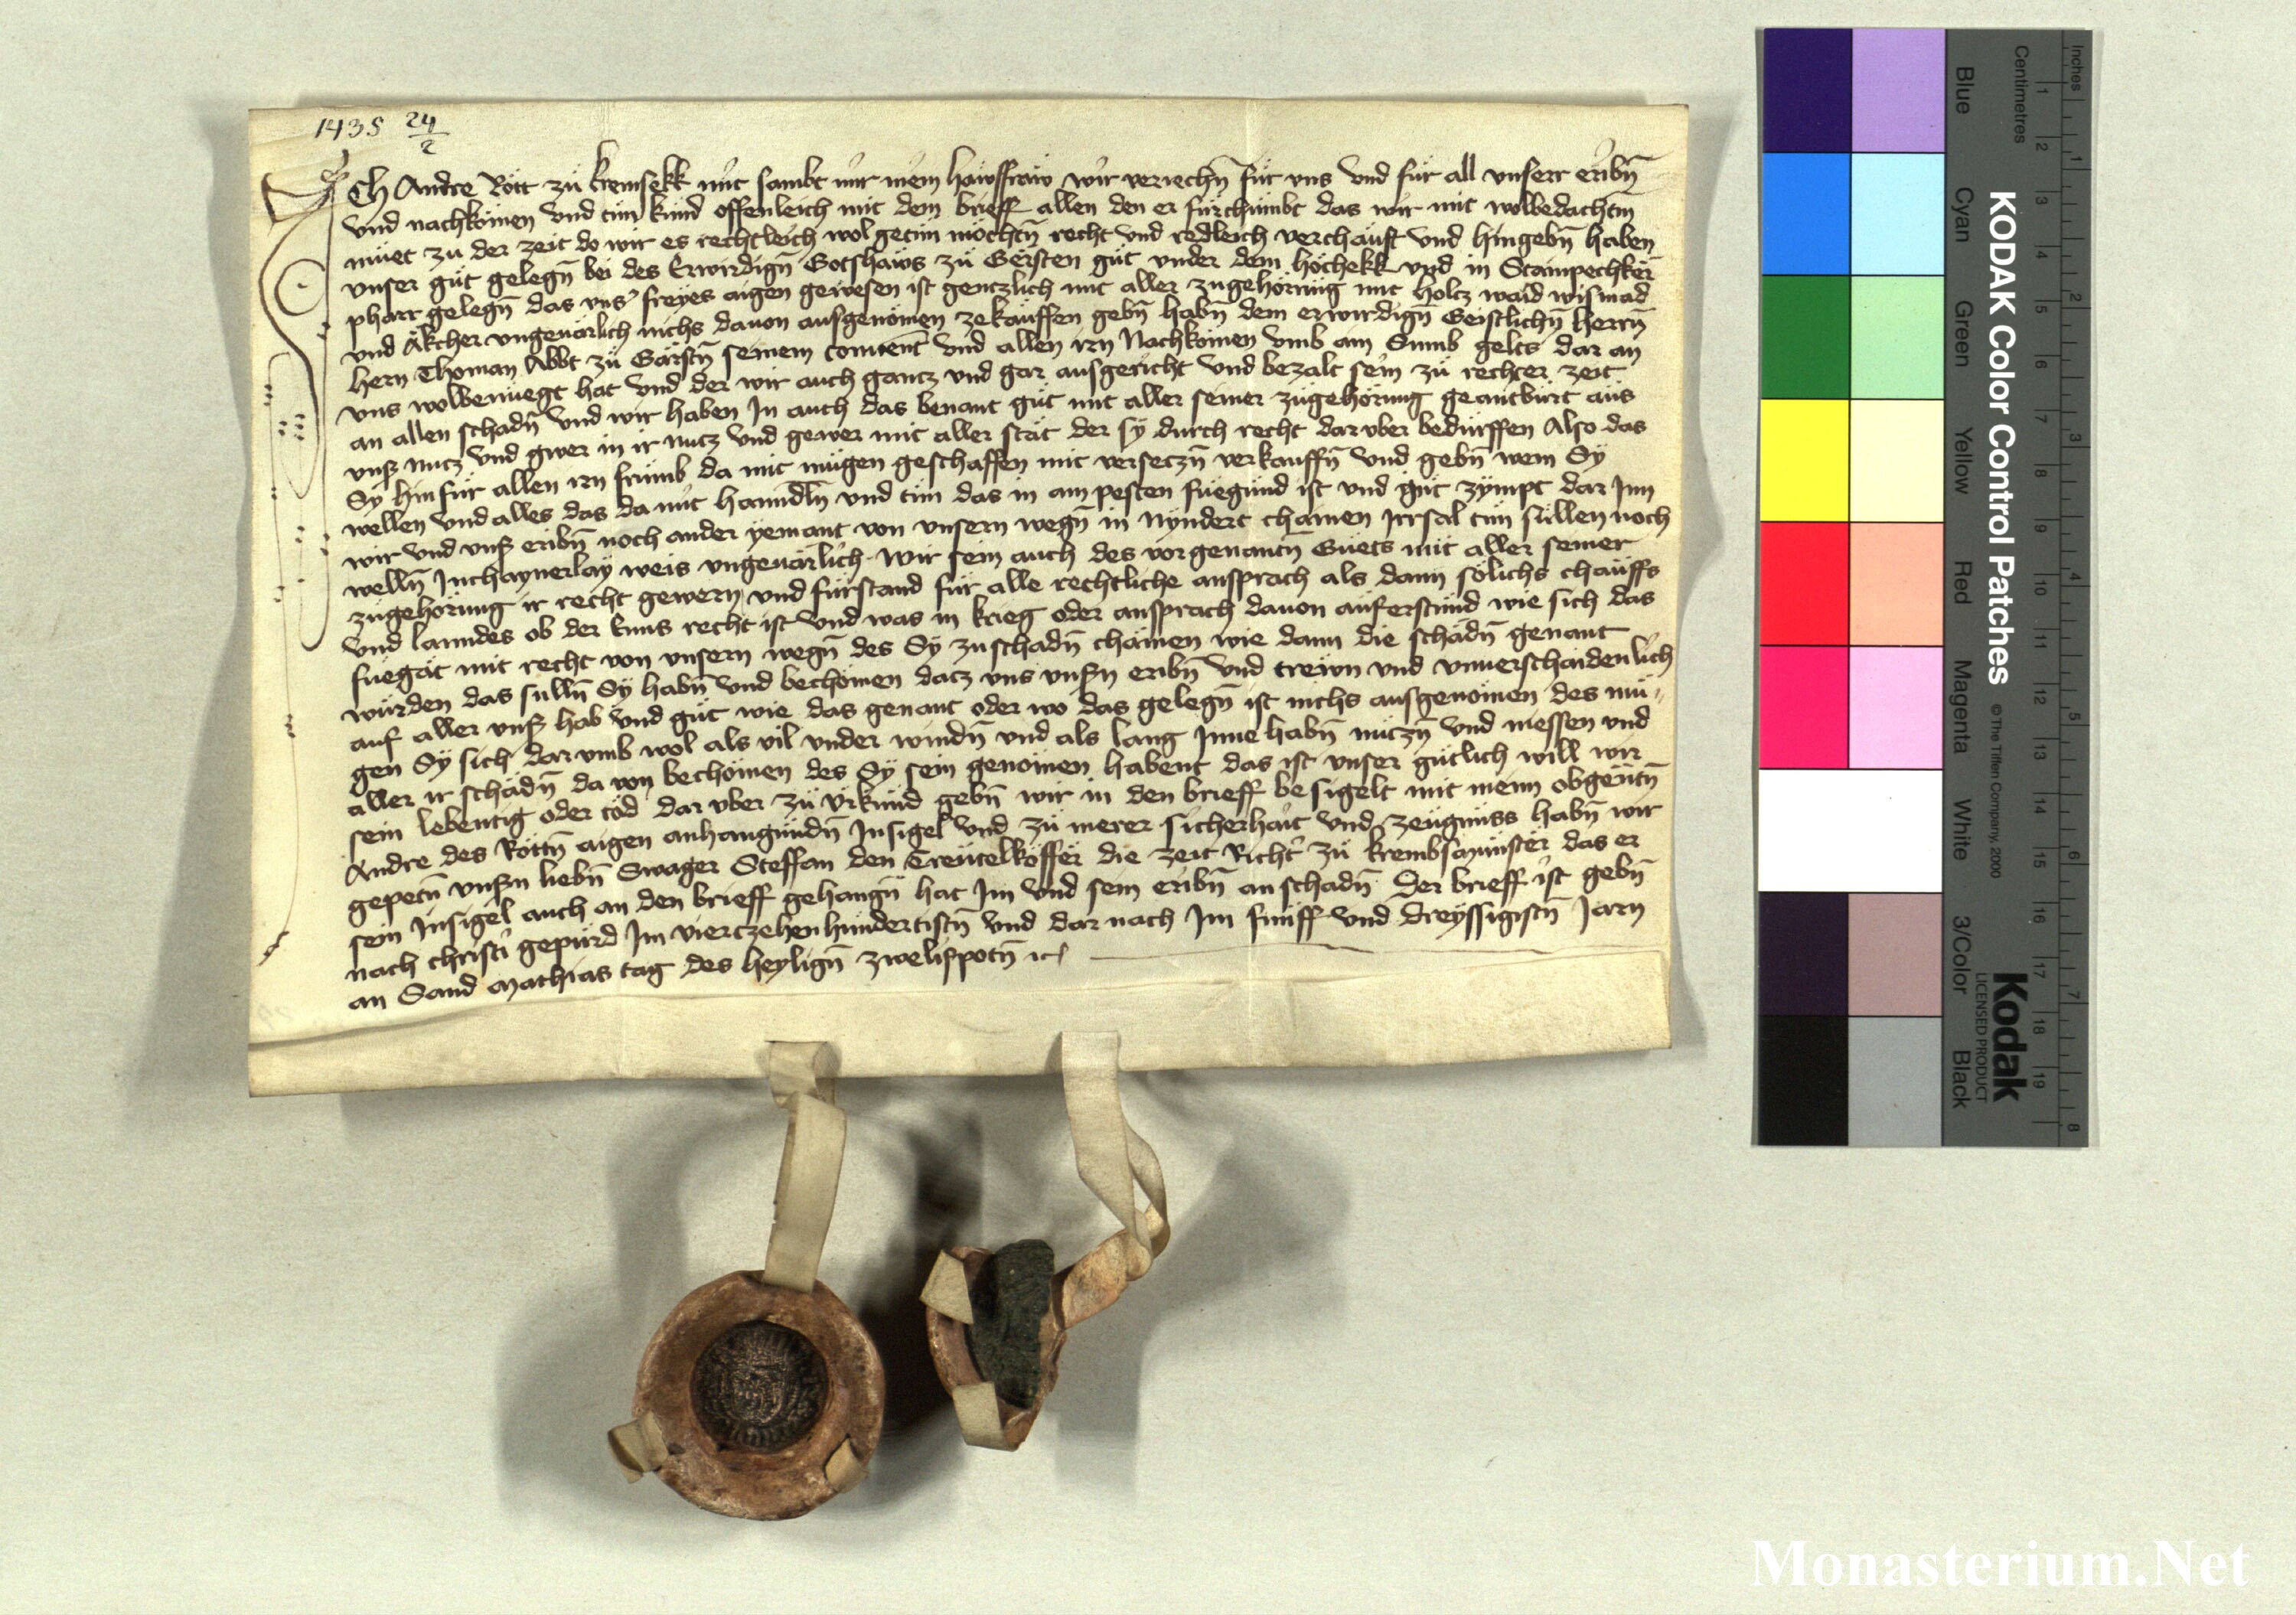 1435 24/2
Ich Andre Rött zu kremsekk mit sambt mir mein hawsfraw wir veriechn̄ für vns vnd für all vnserr eribn̄
vnd nachkömen vnd tün künd offenleich mit dem brieff allen den er fürchümbt das wir mit wolbedachtm
müet zu der zeit do wir es rechtleich wol getün möchtn̄ recht vnd redleich verchauft vnd hingebn̄ haben
vnser güt gelegn̄ bei des Erwirdign̄ Gotshaws zü Gersten güt vnder dem höchekk vnd in Stainpechker
pharr gelegn̄ das vns freyes aigen gewesen ist gentzlich mit aller zugehörung mit holtz waid wismad
vnd Äkcher vngeuärlich nichs dauon ausgenömen zekauffen gebn̄ habn̄ dem erwirdign̄ Geistlichn̄ herrn̄
hern Thoman Abbt zü Gärstn̄ seinem conuent vnd allen irn Nachkömen vmb ain Summ gelts dar an
vns wolbenuegt hat vnd der wir auch gantz vnd gar ausgericht vnd bezalt sein zü rechter zeit
an allen schadn̄ vnd wir haben Jn auch das benant güt mit aller seiner zügehörung geantbürt aüs
vnß nutz vnd gwer in ir nutz vnd gewer mit aller stät der sy durch recht dar vber bedürffen Also das
Sy hinfür allen irn frümb da mit mügen geschaffen mit versetzn̄ verkauffn̄ vnd gebn̄ wem Sy
wellen vnd alles das da mit hanndln̄ vnd tün das in am pesten füegünd ist vnd güt zympt dar Jnn
wir vnd vnß eribn̄ noch ander yemant von vnsern wegn̄ in nyndert chainen Jrrsal tün süllen noch
welln̄ Jnchaynerlay weis vngeuärlich Wir sein auch des vorgenantn̄ Güets mit aller seiner
zügehörung ir recht gewern vnd fürstand für alle rechtliche ansprach als dann sölichs chauffs
vnd lanndes ob der Enns recht ist vnd was in krieg oder ansprach dauon auferstünd wie sich das
füegät mit recht von vnsern wegn̄ des Sy zuschadn̄ chämen wie dann die schädn̄ genant
würden das sülln̄ Sy habn̄ vnd bechömen datz vns vnßn eribn̄ vnd trewn vnd vnuerschaidenlich
auf aller vnß hab vnd güt wie das genant oder wo das gelegn̄ ist nichs ausgenömen des mü-
gen Sy sich dar vmb wol als vil vnder windn̄ vnd als lang Jnne habn̄ nützn̄ vnd niessen vnd
aller ir schädn̄ da von bechömen des Sy sein genömen habent das ist vnser gütlich will wir
sein lebentig oder tod dar vber zü vrkünd gebn̄ wir in den brieff besigelt mit meinn obgen̄tn̄
Andre des Röttn̄ aigen anhangündn̄ Jnsigel vnd zü merer sicherhait vnd zeügnüss habn̄ wir
gepetn̄ vnßn liebn̄ Swager Steffan den Treütelköffer die zeit Richtr̄ zü krembsmünster das er
sein Jnsigel auch an den brieff gehangn̄ hat Jm vnd sein eribn̄ an schadn̄ Der brieff ist gebn̄
nach christi gepürd Jm vierczehenhündertistn̄ vnd dar nach Jm fünff vnd dreyssigistn̄ Jarn
an Sand Mathias tag des heylign̄ zwelifpotn̄ ꝛc
KODAK Color Control Patches
© The Tiffen Company, 2000
Kodak
LICENSED PRODUCT
Inches
1 2 3 4 5 6 7 8
Centimetres
1 2 3 4 5 6 7 8 9 10 11 12 13 14 15 16 17 18 19
Blue Cyan Green Yellow Red Magenta White 3/Color Black
Monasterium.Net